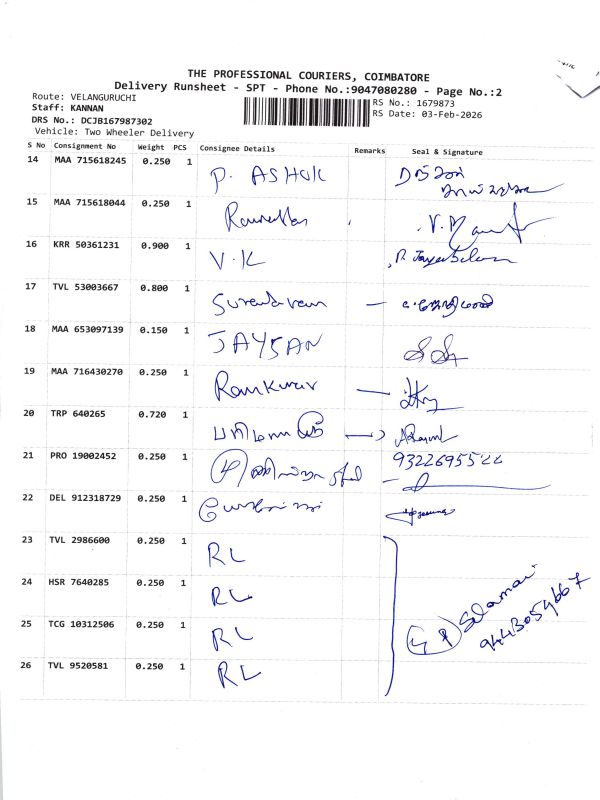 THE PROFESSIONAL COURIERS, COIMBATORE
Delivery Runsheet - SPT - Phone No.:9047080280 - Page No.:2
Route: VELANGURUCHI
RS No.: 1679873
Staff: KANNAN
RS Date: 03-Feb-2026
DRS No.: DCJB167987302
Vehicle: Two Wheeler Delivery
S No Consignment No Weight PCS Consignee Details Remarks Seal & Signature
14 MAA 715618245 0.250 1 P. ASHOK
15 MAA 715618044 0.250 1
16 KRR 50361231 0.900 1 V.K
17 TVL 53003667 0.800 1
18 MAA 653097139 0.150 1 JAYSAN
19 MAA 716430270 0.250 1 Ramkumar
20 TRP 640265 0.720 1
21 PRO 19002452 0.250 1
22 DEL 912318729 0.250 1
23 TVL 2986600 0.250 1 RL
24 HSR 7640285 0.250 1 RL
25 TCG 10312506 0.250 1 RL
26 TVL 9520581 0.250 1 RL
9443059667